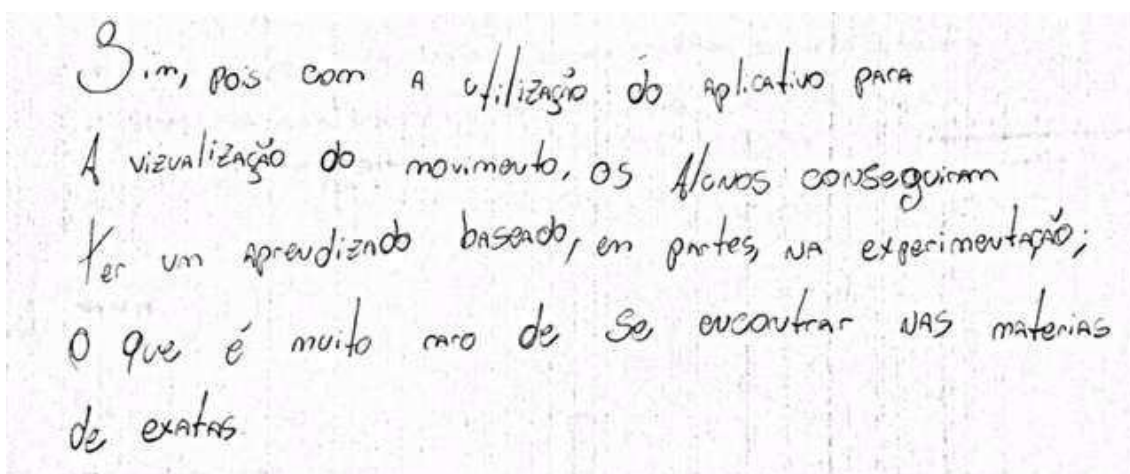 Sim, pois com a utilização do aplicativo para
A vizualização do movimento, os Alunos conseguiram
ter um aprendizado baseado, em partes, na experimentação;
O que é muito raro de se encontrar nas materias
de exatas.